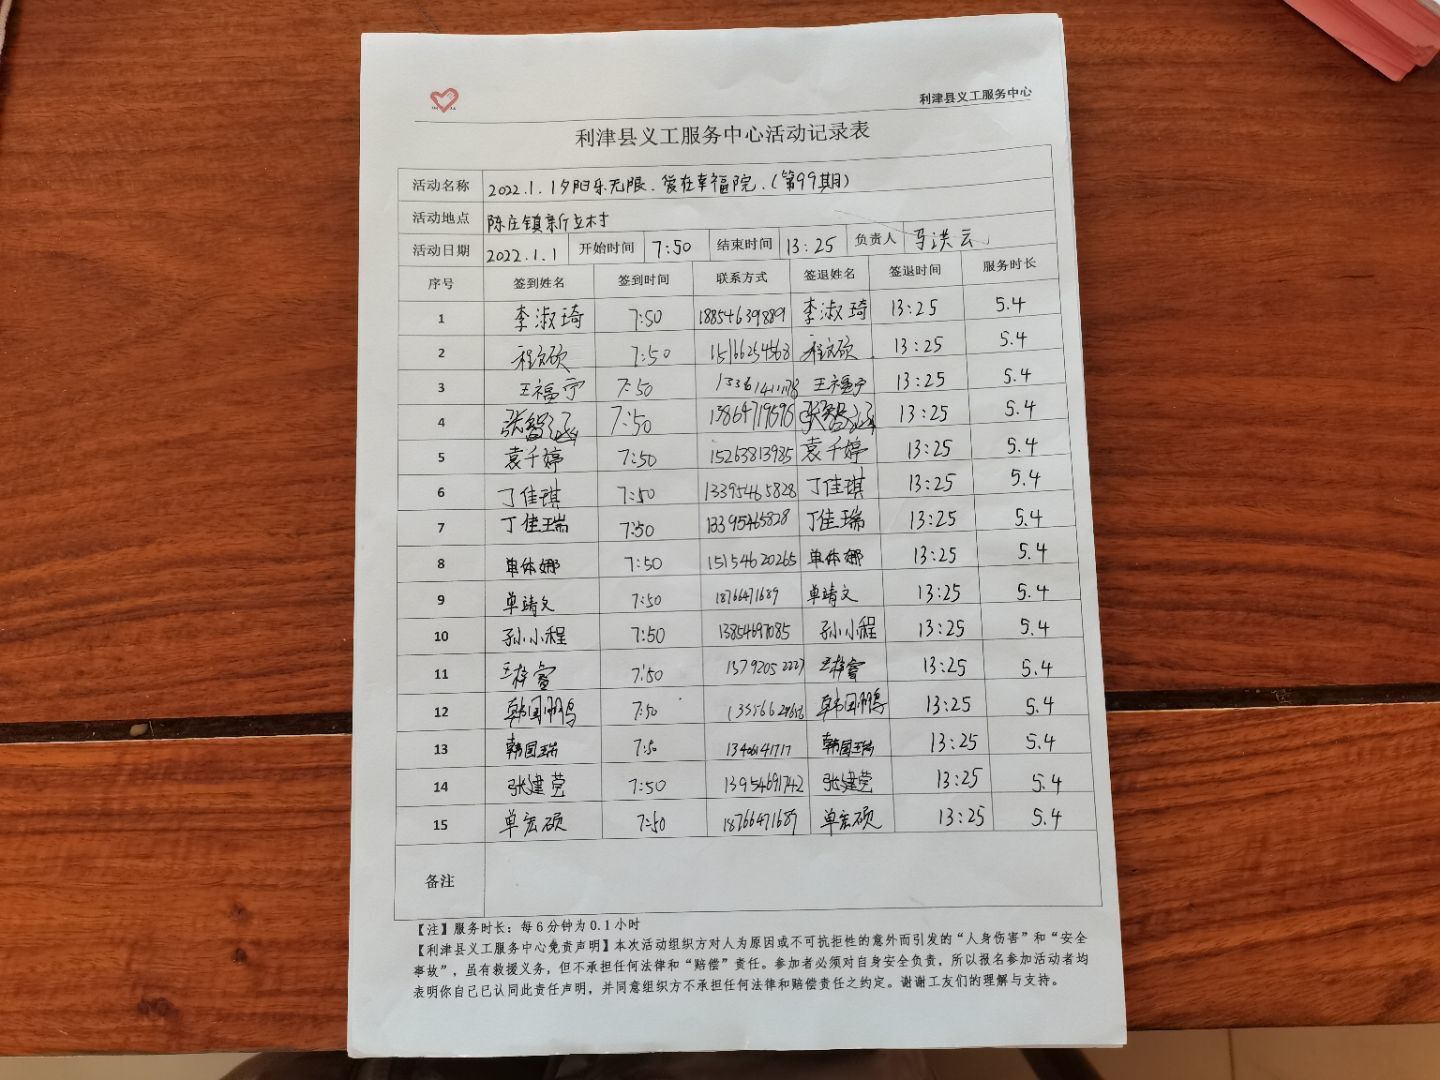 利津县义工服务中心
利津县义工服务中心活动记录表
活动名称 2022.1.1夕阳乐无限.爱在幸福院.(第99期)
活动地点 陈庄镇新立村
活动日期 2022.1.1 开始时间 7:50 结束时间 13:25 负责人 马洪云
序号 签到姓名 签到时间 联系方式 签退姓名 签退时间 服务时长
1 李淑琦 7:50 18854639889 李淑琦 13:25 5.4
2 程文硕 7:50 15166254568 程文硕 13:25 5.4
3 王福宁 7:50 王福宁 13:25 5.4
4 张智涵 7:50 张智涵 13:25 5.4
5 袁千婷 7:50 15263813985 袁千婷 13:25 5.4
6 丁佳琪 7:50 13395465828 丁佳琪 13:25 5.4
7 丁佳瑞 7:50 13395465828 丁佳瑞 13:25 5.4
8 单体娜 7:50 15154620265 单体娜 13:25 5.4
9 单靖文 7:50 18766471689 单靖文 13:25 5.4
10 孙小程 7:50 13854697085 孙小程 13:25 5.4
11 王梓睿 7:50 13792052227 王梓睿 13:25 5.4
12 韩国鹏 7:50 韩国鹏 13:25 5.4
13 韩国瑞 7:50 13406141717 韩国瑞 13:25 5.4
14 张建莹 7:50 13954691742 张建莹 13:25 5.4
15 单宏硕 7:50 18766471689 单宏硕 13:25 5.4
备注
【注】服务时长：每6分钟为0.1小时
【利津县义工服务中心免责声明】本次活动组织方对人为原因或不可抗拒性的意外而引发的“人身伤害”和“安全
事故”，虽有救援义务，但不承担任何法律和“赔偿”责任。参加者必须对自身安全负责，所以报名参加活动者均
表明你自己已认同此责任声明，并同意组织方不承担任何法律和赔偿责任之约定。谢谢工友们的理解与支持。